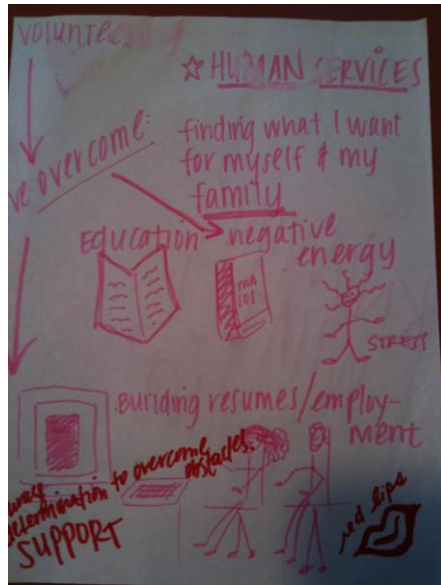 VOLUNTE
☆ HUMAN SERVICES
ve overcome:
finding what I want
for myself & my
family
Education
negative
energy
MA
101
STRESS
.Buriding resumes/employ-
ment
determination to overcome obstacles.
SUPPORT
red lips